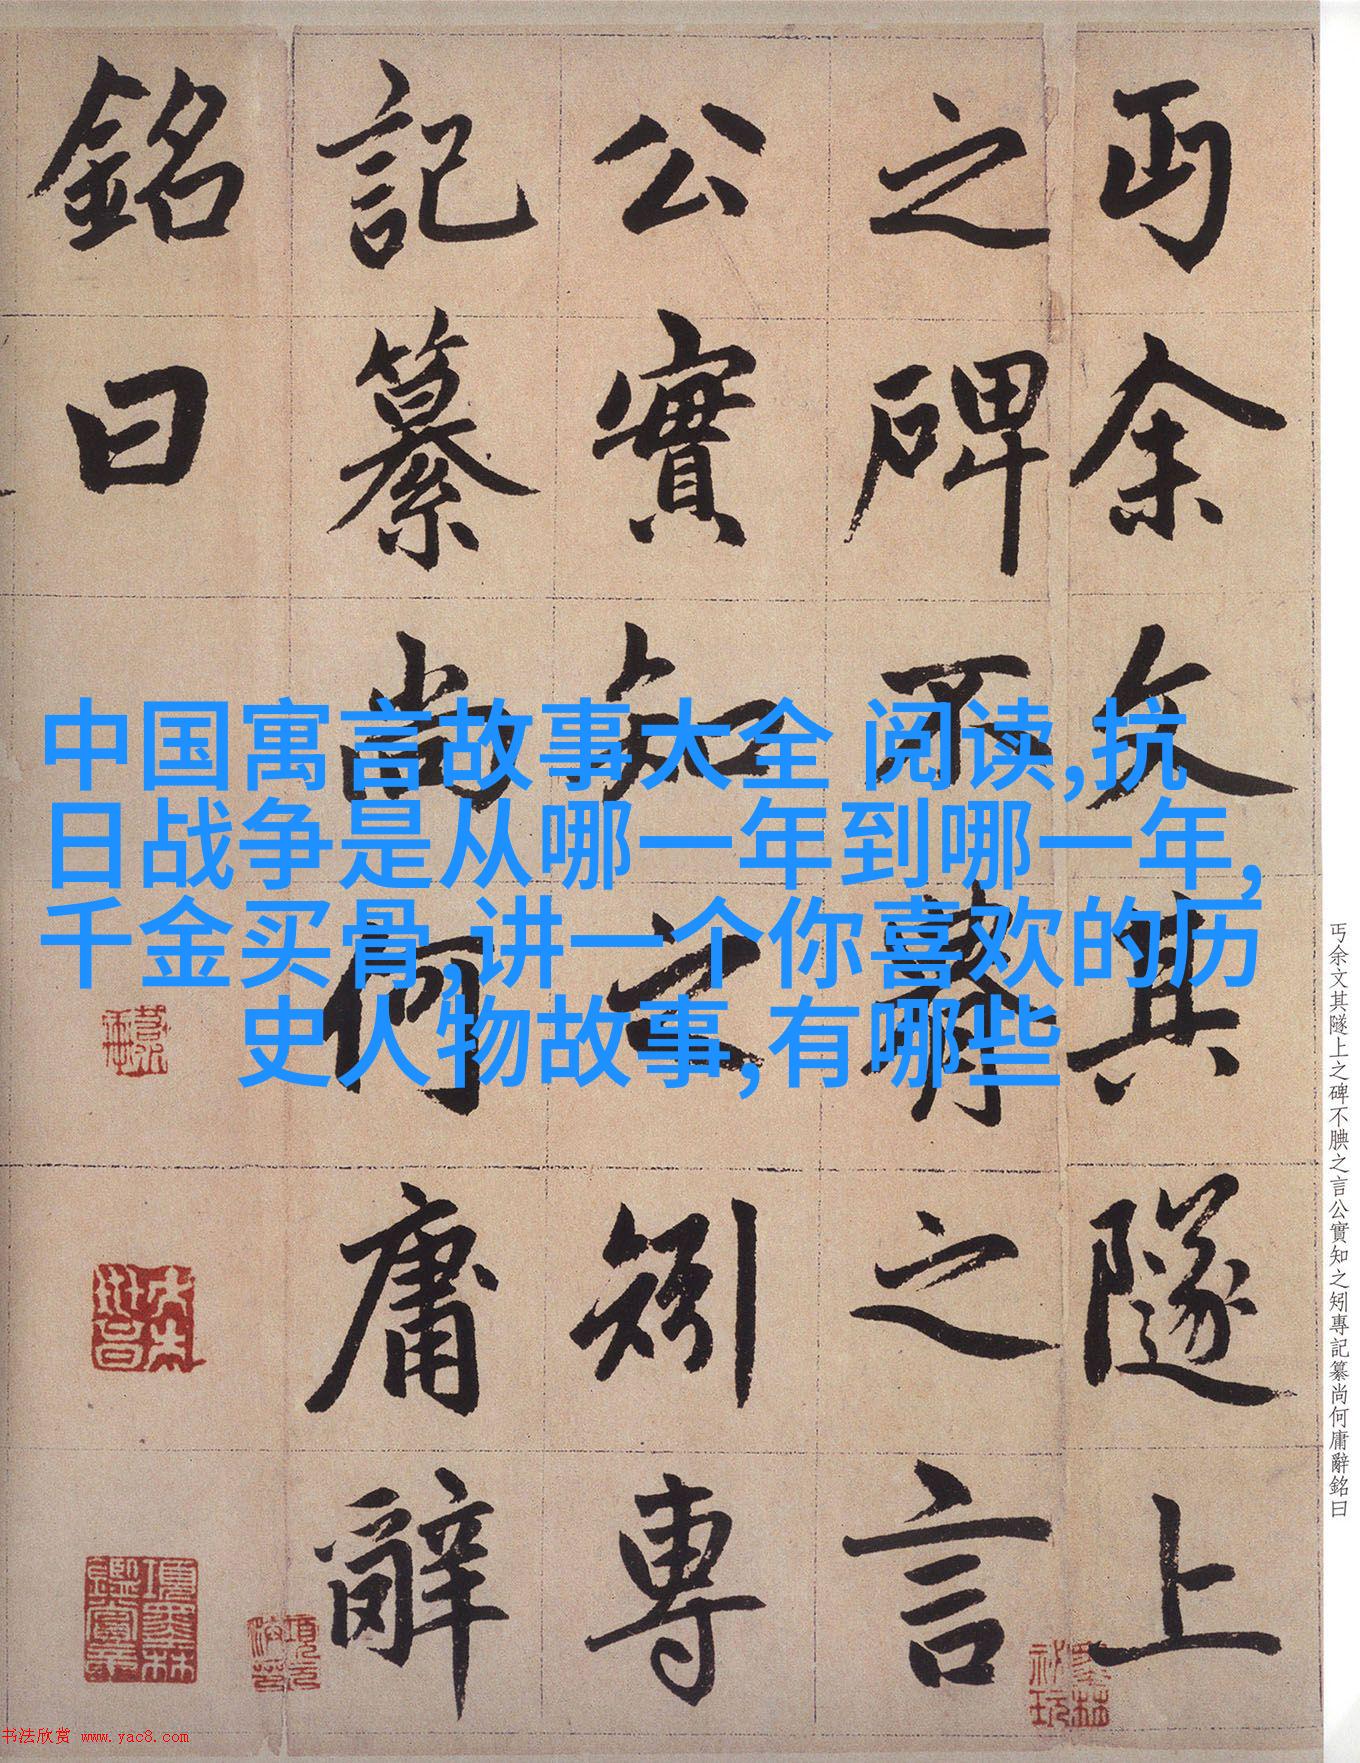 丐余文其隧上
之碑不腆之言
公實知之矧專
記纂尚何庸辭
銘曰
中国寓言故事大全 阅读,抗
日战争是从哪一年到哪一年,
千金买骨,讲一个你喜欢的历
史人物故事,有哪些
丐余文其隧上之碑不腆之言公實知之矧專記纂尚何庸辭銘曰
项墨林鑑賞章
书法欣赏 www.yac8.com